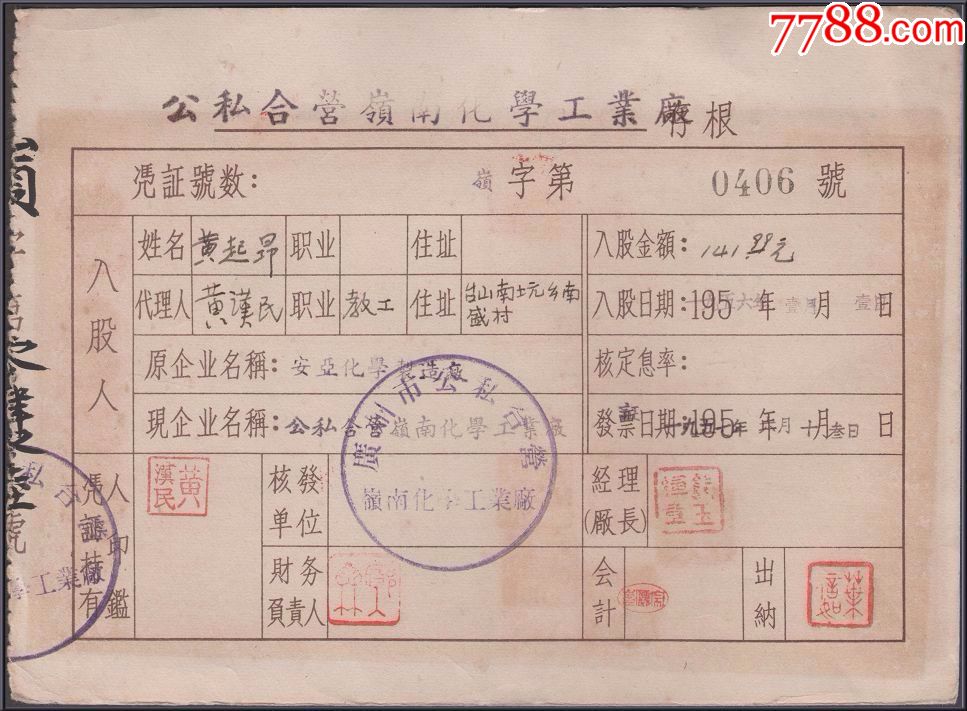 7788.com
公私合營嶺南化學工業廠存根
憑証號數: 嶺字第 0406 號
入股人
姓名 黄起昂 职业 住址
入股金額: 141.99元
代理人 黄漢民 职业 教工 住址 台山南坑乡南盛村
入股日期: 195 六年 壹月 壹日
原企业名稱: 安亞化學製造廠
核定息率:
現企业名稱: 公私合營嶺南化學工業廠
發票日期: 195 年 月十叁日
憑證持有人印鑑
黄漢民
核發单位
廣州市公私合營
嶺南化學工業廠
經理(廠長)
財务負責人
会計
出納
葉
字第零肆零陸號
工業廠